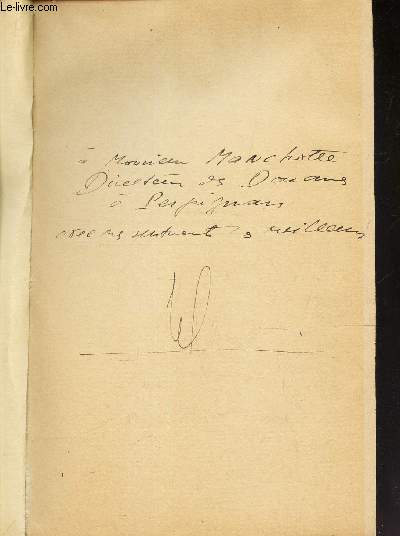 © Le-livre.com
à Monsieur
Directeur des Douanes
à Perpignan
avec mes sentiments les meilleurs